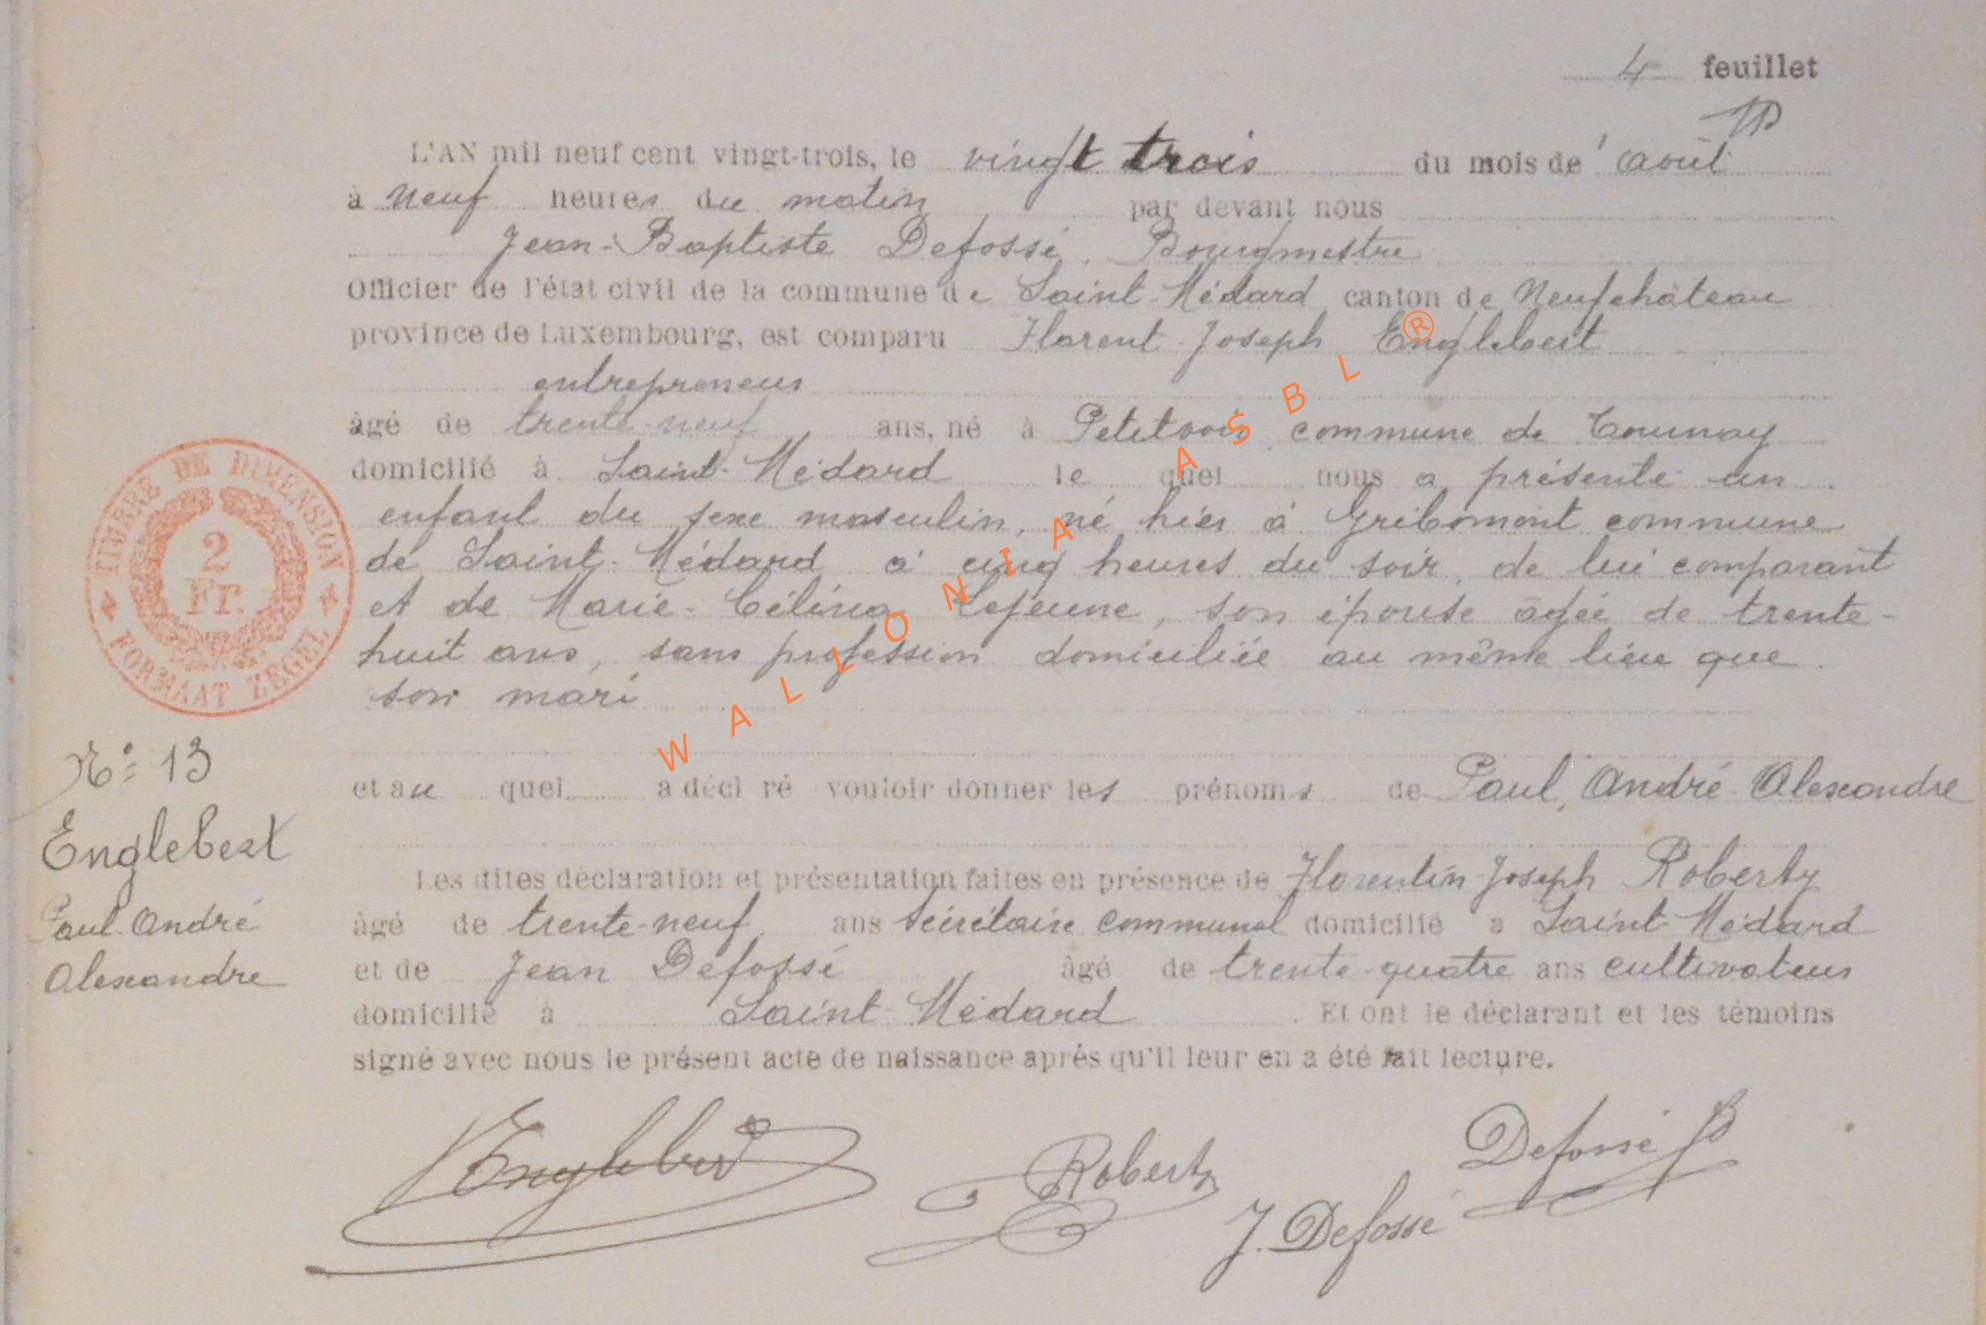 4 feuillet
L'AN mil neuf cent vingt-trois, le vingt trois du mois de août
à neuf heures du matin par devant nous
Jean-Baptiste Defossé, Bourgmestre
Officier de l'état civil de la commune de Saint-Médard canton de Neufchâteau
province de Luxembourg, est comparu Florent Joseph Englebert
entrepreneur
âgé de trente-neuf ans, né à Petitvoir commune de Tournay
domicilié à Saint-Médard le quel nous a présenté un
enfant du sexe masculin, né hier à Gribomont commune
de Saint-Médard à cinq heures du soir, de lui comparant
et de Marie-Célina Lejeune, son épouse âgée de trente-
huit ans, sans profession domiciliée au même lieu que
son mari
et au quel a décl ré vouloir donner les prénoms de Paul, André Alexandre
Les dites déclaration et présentation faites en présence de Florentin-Joseph Roberty
âgé de trente-neuf ans secrétaire communal domicilié a Saint-Médard
et de Jean Defossé âgé de trente-quatre ans cultivateur
domicilié à Saint-Médard. Et ont le déclarant et les témoins
signé avec nous le présent acte de naissance après qu'il leur en a été fait lecture.
TIMBRE DE DIMENSION
2
Fr.
FORMAAT ZEGEL
N° 13
Englebert
Paul-André
Alexandre
Englebert
Roberty
J. Defossé
Defossé JB
WALLONIA ASBL ®